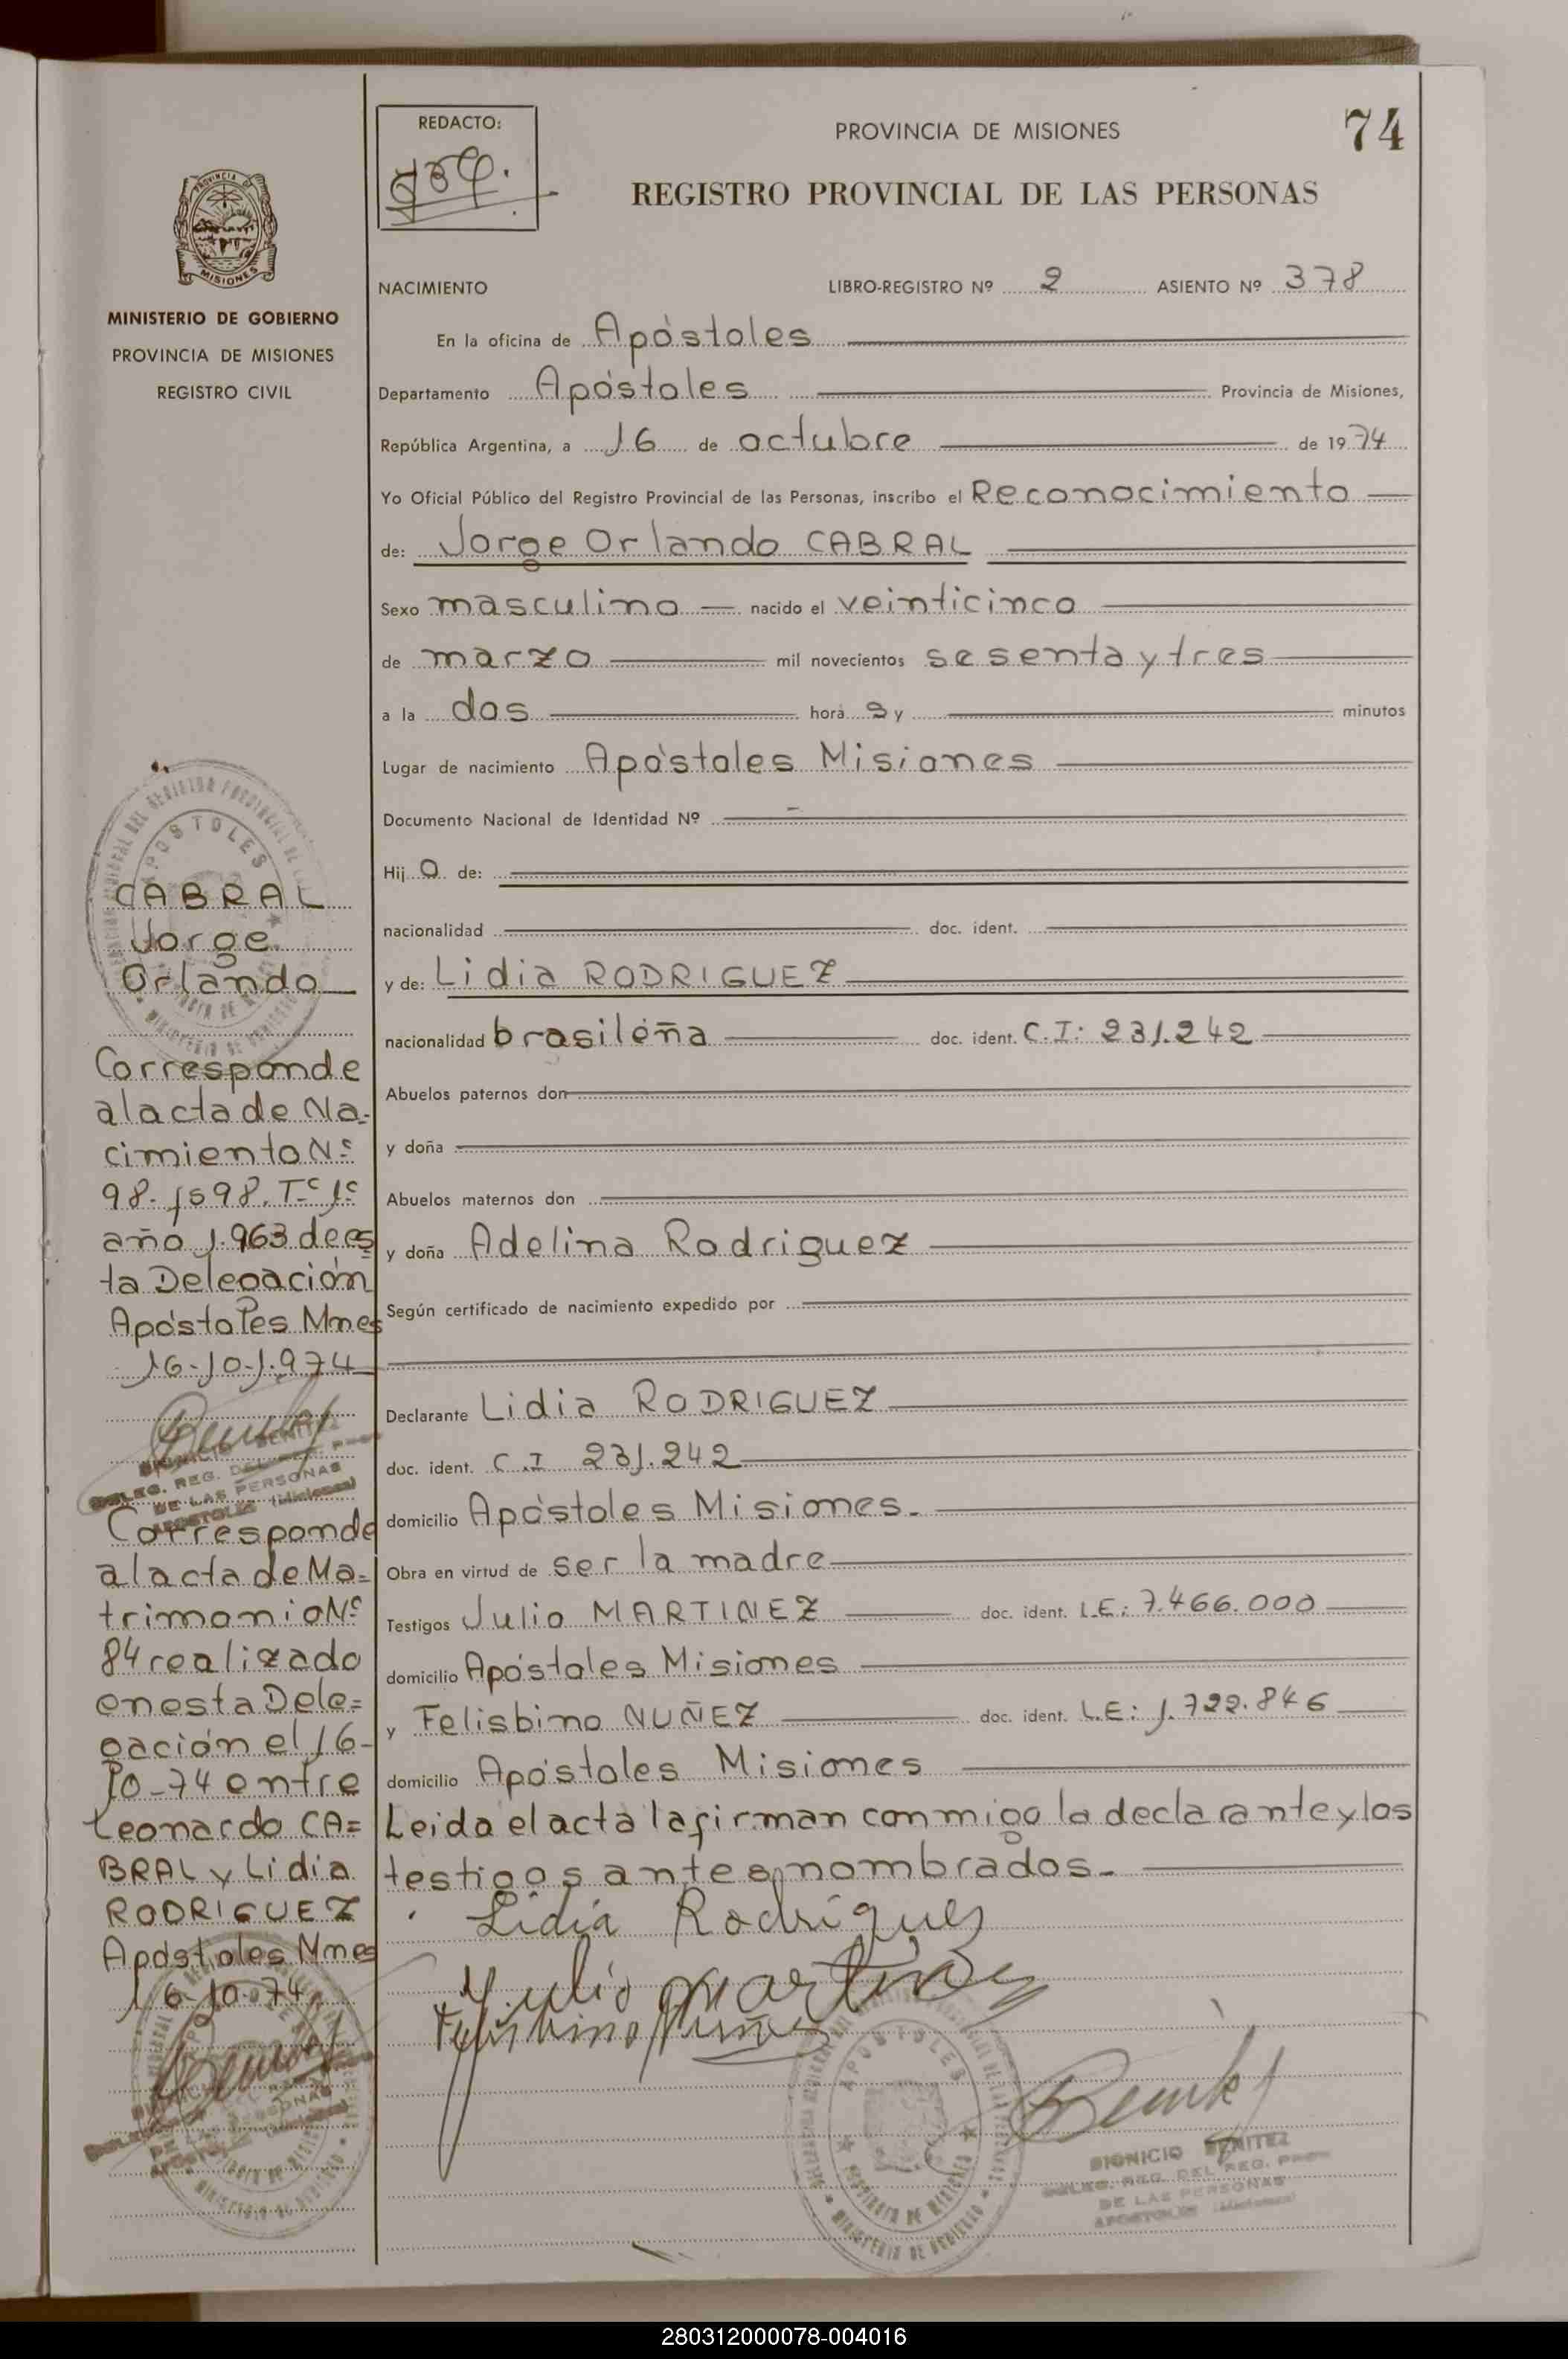 REDACTO:
PROVINCIA DE MISIONES
74
REGISTRO PROVINCIAL DE LAS PERSONAS
PROVINCIA DE
MISIONES
MINISTERIO DE GOBIERNO
PROVINCIA DE MISIONES
REGISTRO CIVIL
NACIMIENTO LIBRO-REGISTRO Nº 2 ASIENTO Nº 378
En la oficina de Apóstoles
Departamento Apóstoles Provincia de Misiones,
República Argentina, a 16 de octubre de 1974
Yo Oficial Público del Registro Provincial de las Personas, inscribo el Reconocimiento
de: Jorge Orlando CABRAL
Sexo masculino nacido el veinticinco
de marzo mil novecientos sesenta y tres
a la dos hora s y minutos
Lugar de nacimiento Apóstoles Misiones
Documento Nacional de Identidad Nº
Hij o de:
nacionalidad doc. ident.
y de: Lidia RODRIGUEZ
nacionalidad brasileña doc. ident. C.I: 231.242
Abuelos paternos don
y doña
Abuelos maternos don
y doña Adelina Rodriguez
Según certificado de nacimiento expedido por
Declarante Lidia RODRIGUEZ
doc. ident. C.I 231.242
domicilio Apóstoles Misiones.
Obra en virtud de ser la madre
Testigos Julio MARTINEZ doc. ident. L.E: 7.466.000
domicilio Apóstoles Misiones
y Felisbino NUÑEZ doc. ident. L.E: 1.722.846
domicilio Apóstoles Misiones
Leida el acta la firman conmigo la declarante y los
testigos antes nombrados.
Lidia Rodrigues
Julio Martinez
Felisbino Nuñes
APOSTOLES
PROVINCIA DE MISIONES
MINISTERIO DE GOBIERNO
DIONICIO BENITEZ
DELEG. REG. DEL REG. PROV.
DE LAS PERSONAS
APOSTOLES (Misiones)
CABRAL
Jorge
Orlando
Corresponde
al acta de Na-
cimiento Nº
98. fs 98. Tº 1º
año 1.963 de es
ta Delegación
Apóstoles Mnes
16-10-1.974
DIONICIO BENITEZ
DELEG. REG. DEL REG. PROV.
DE LAS PERSONAS
APOSTOLES (Misiones)
Corresponde
al acta de Ma=
trimonio Nº
84 realizado
en esta Dele=
gación el 16-
10-74 entre
Leonardo CA=
BRAL y Lidia
RODRIGUEZ
Apóstoles Mnes
16-10-74
280312000078-004016